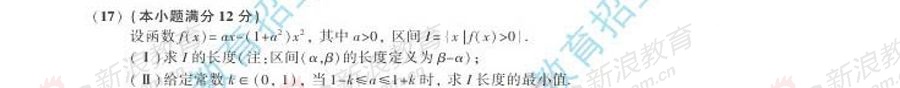 (17)(本小题满分12分)
设函数f(x)=ax-(1+a²)x²,其中a>0,区间I={x|f(x)>0}.
(Ⅰ)求I的长度(注:区间(α,β)的长度定义为β-α);
(Ⅱ)给定常数k∈(0,1),当1-k≤a≤1+k时,求I长度的最小值.
新浪教育